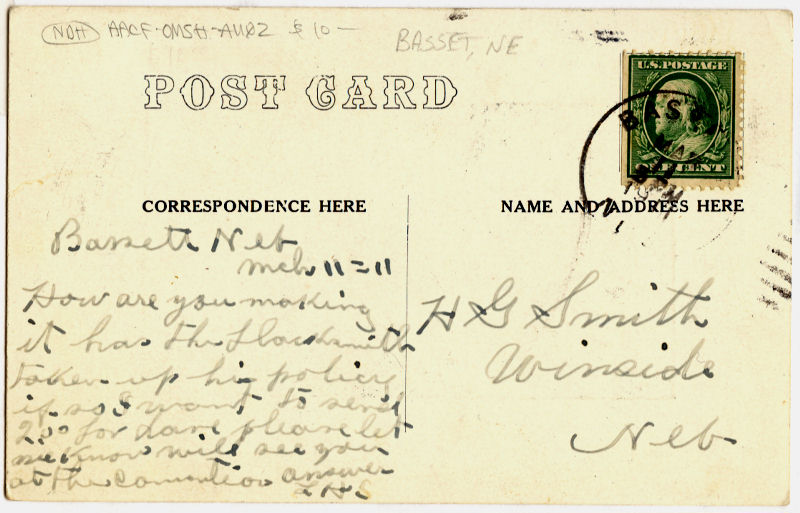 NDH AACF-OMSH-AU02 $10-
BASSET, NE
POST CARD
U.S. POSTAGE
CENT
BAS
MA
11
CORRESPONDENCE HERE
NAME AND ADDRESS HERE
Bassett Neb
mch 11=11
How are you making
it has the Blacksmith
taken up his policy
if so I want to send
2oo for dave please let
me know will see you
at the convention answer
H S
H G Smith
Winside
Neb